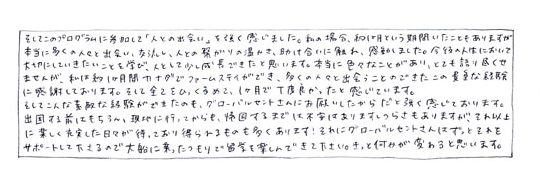 そしてこのプログラムに参加して「人との出会い」を強く感じました。私の場合、約1ヶ月という期間いたこともありますが
本当に多くの人々と出会い、交流し、人との繋がりの温かさ、助け合いに触れ、感動しました。今後の人生において
大切にしていきたいことを学び、人として少し成長できたと思います。本当に色々なことがあり、とても語り尽くせ
ませんが、私は約1ヶ月間カナダでファームステイができ、多くの人々と出会うことのできたこの貴重な経験
に感謝しております。そして全てをひっくるめて、1ヶ月で丁度良かったと感じています。
そしてこんな素敵な経験ができたのも、グローバルセントさんにお願いしたからだと強く感じております。
出国する前はもちろん、現地に行ってからも、帰国するまでは不安はありますしつらさもありますが、それ以上
に楽しく充実した日々が待っており得られるものも多くあります!それにグローバルセントさんはずっとそれを
サポートして下さるので大船に乗ったつもりで留学を楽しんできて下さい。きっと何かが変わると思います。